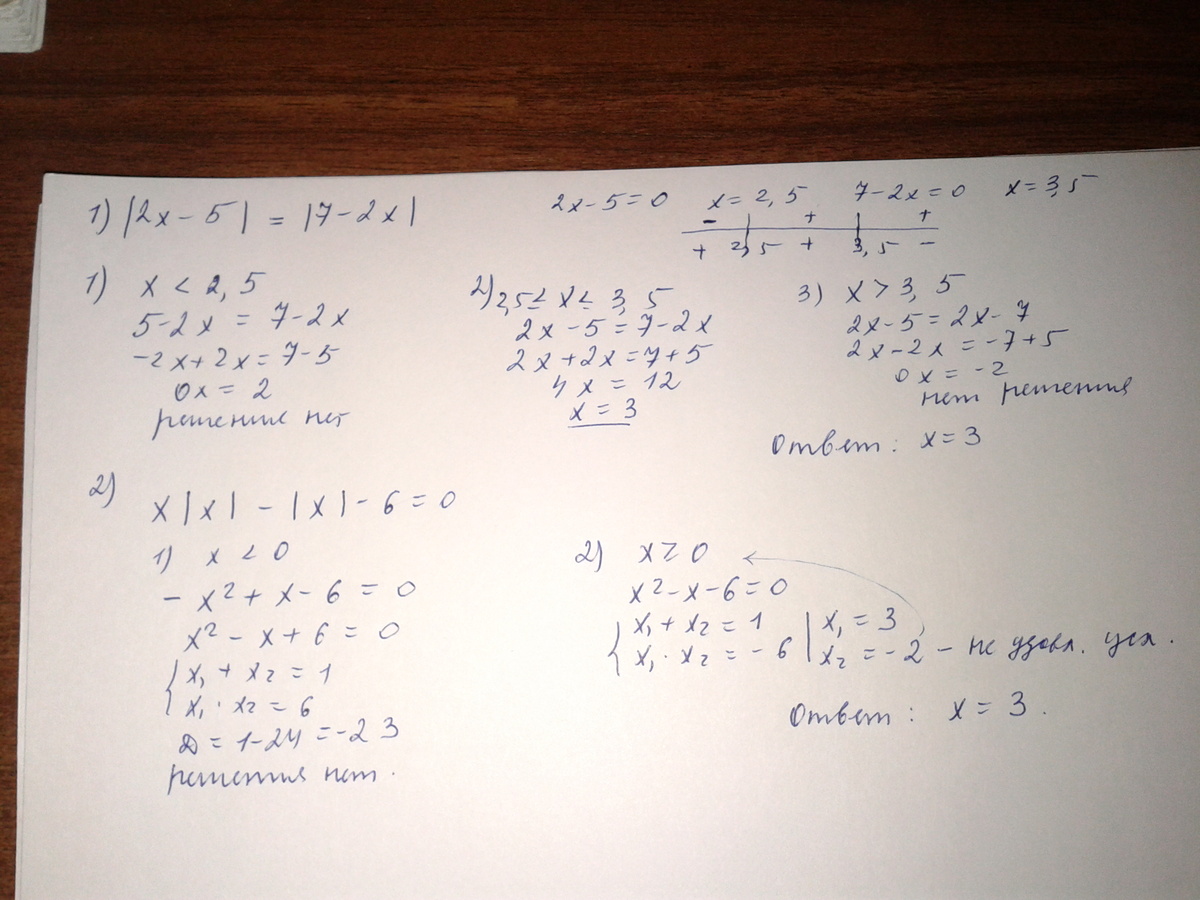 1) |2x - 5| = |7 - 2x|
2x - 5 = 0 x = 2,5 7 - 2x = 0 x = 3,5
- + +
+ 2,5 + 3,5 -
1) x < 2,5
5 - 2x = 7 - 2x
-2x + 2x = 7 - 5
0x = 2
решения нет
2) 2,5 ≤ x ≤ 3,5
2x - 5 = 7 - 2x
2x + 2x = 7 + 5
4x = 12
x = 3
3) x > 3,5
2x - 5 = 2x - 7
2x - 2x = -7 + 5
0x = -2
нет решения
Ответ: x = 3
2)
x|x| - |x| - 6 = 0
1) x < 0
- x² + x - 6 = 0
x² - x + 6 = 0
{ x₁ + x₂ = 1
x₁ · x₂ = 6
D = 1 - 24 = -23
решения нет.
2) x ≥ 0
x² - x - 6 = 0
{ x₁ + x₂ = 1 | x₁ = 3
x₁ · x₂ = -6 | x₂ = -2 - не удовл. усл.
Ответ: x = 3.